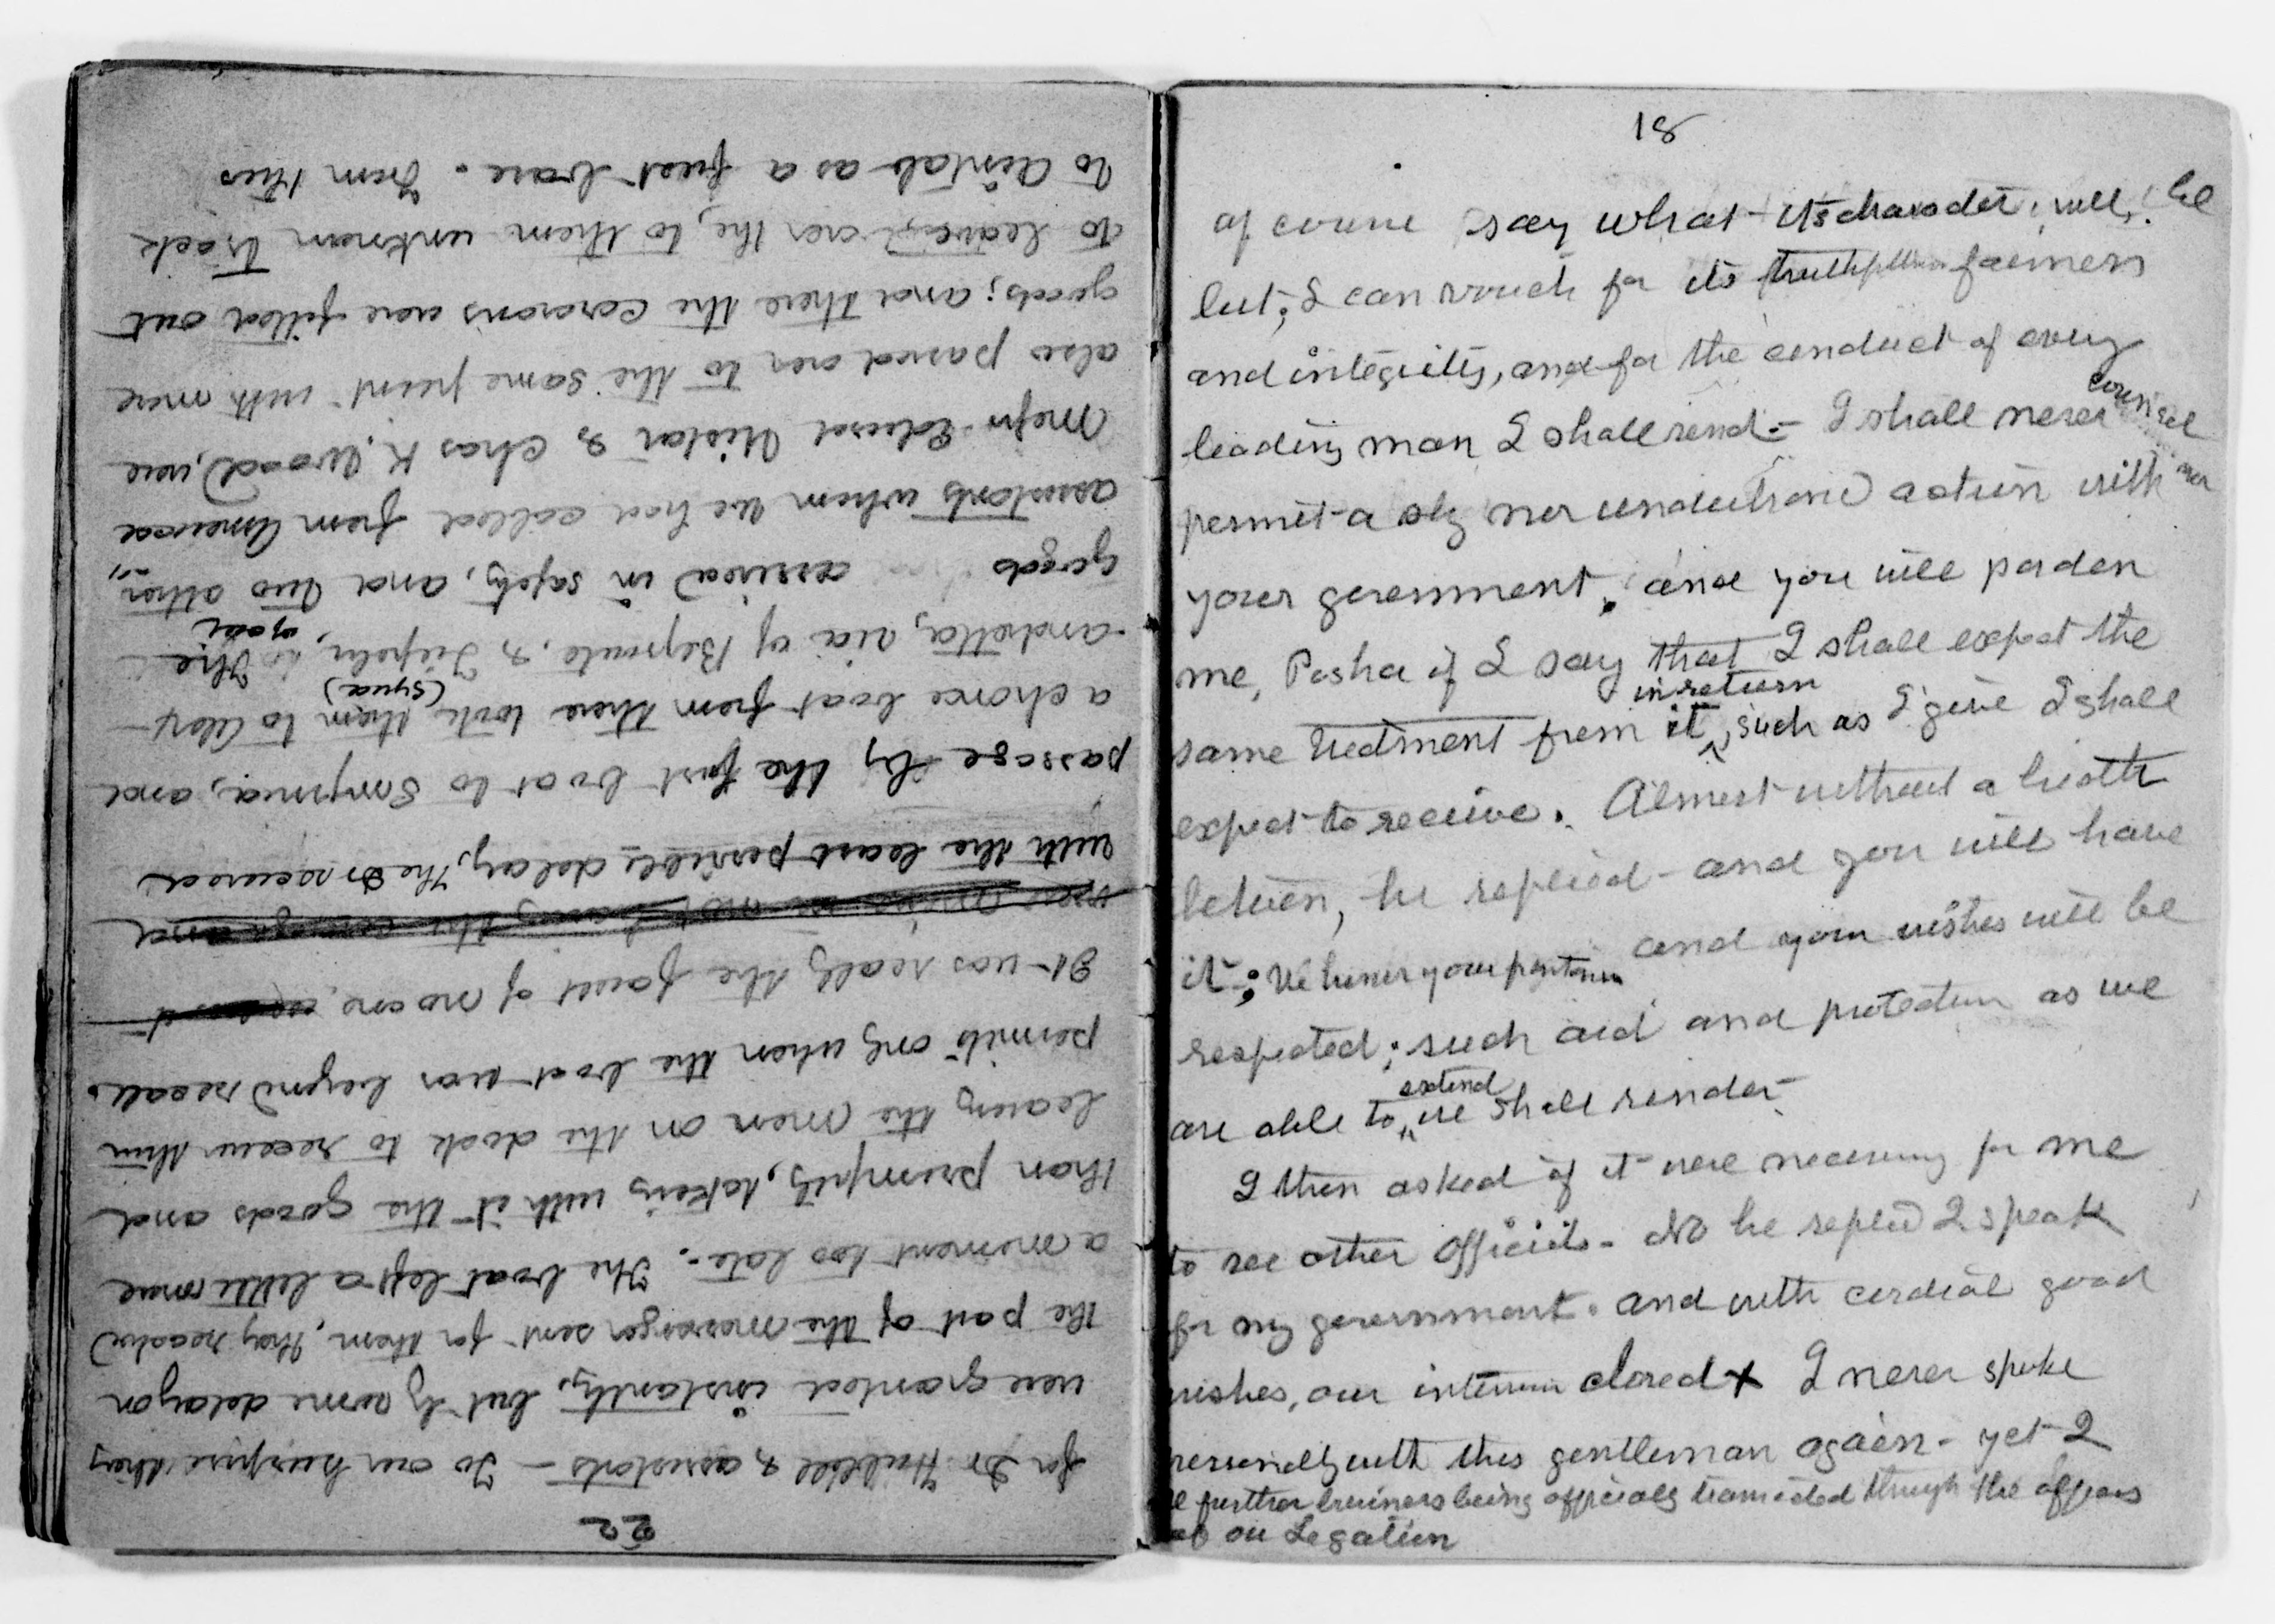 18
of course say what its character will be
but, I can vouch for its truthfulness fairness
and integrity, and for the conduct of every
leading man I shall send - I shall never counsel nor
permit a sly nor underhand action with
your government, and you will pardon
me, Pasha if I say that I shall expect the
same treatment from it in return, such as I give I shall
expect to receive. Almost without a breath
between, he replied - and you will have
it; We honor your position and your wishes will be
respected; such aid and protection as we
are able to extend we shall render
I then asked if it were necessary for me
to see other officials - No he replied I speak
for my government. and with cordial good
wishes, our interview closed x I never spoke
personally with this gentleman again - yet I
further business being officially transacted through the officers
of our Legation
22
for Dr Hubbell & assistants - To our surprise they
were granted instantly, but by some delay on
the part of the messenger sent for them, they reached
a moment too late. The boat left a little more
than promptly, taking with it the goods and
leaving the men on the dock to receive their
permits only when the boat was beyond recall.
It was really the fault of no one.
with the least possible delay, the Dr secured
passage by the first boat to Smyrna, and
a chance boat from there took them to Alex-
(Syria)
andretta, via of Beyroute, & Tripoli, to the
goods arrived in safety, and two other
assistants whom we had called from America
Messrs Edward Wistar & Chas K. Wood, were
also passed over to the same point with more
goods; and there the caravans were fitted out
to leave, over the, to them unknown track
to Aintab as a first base. From this